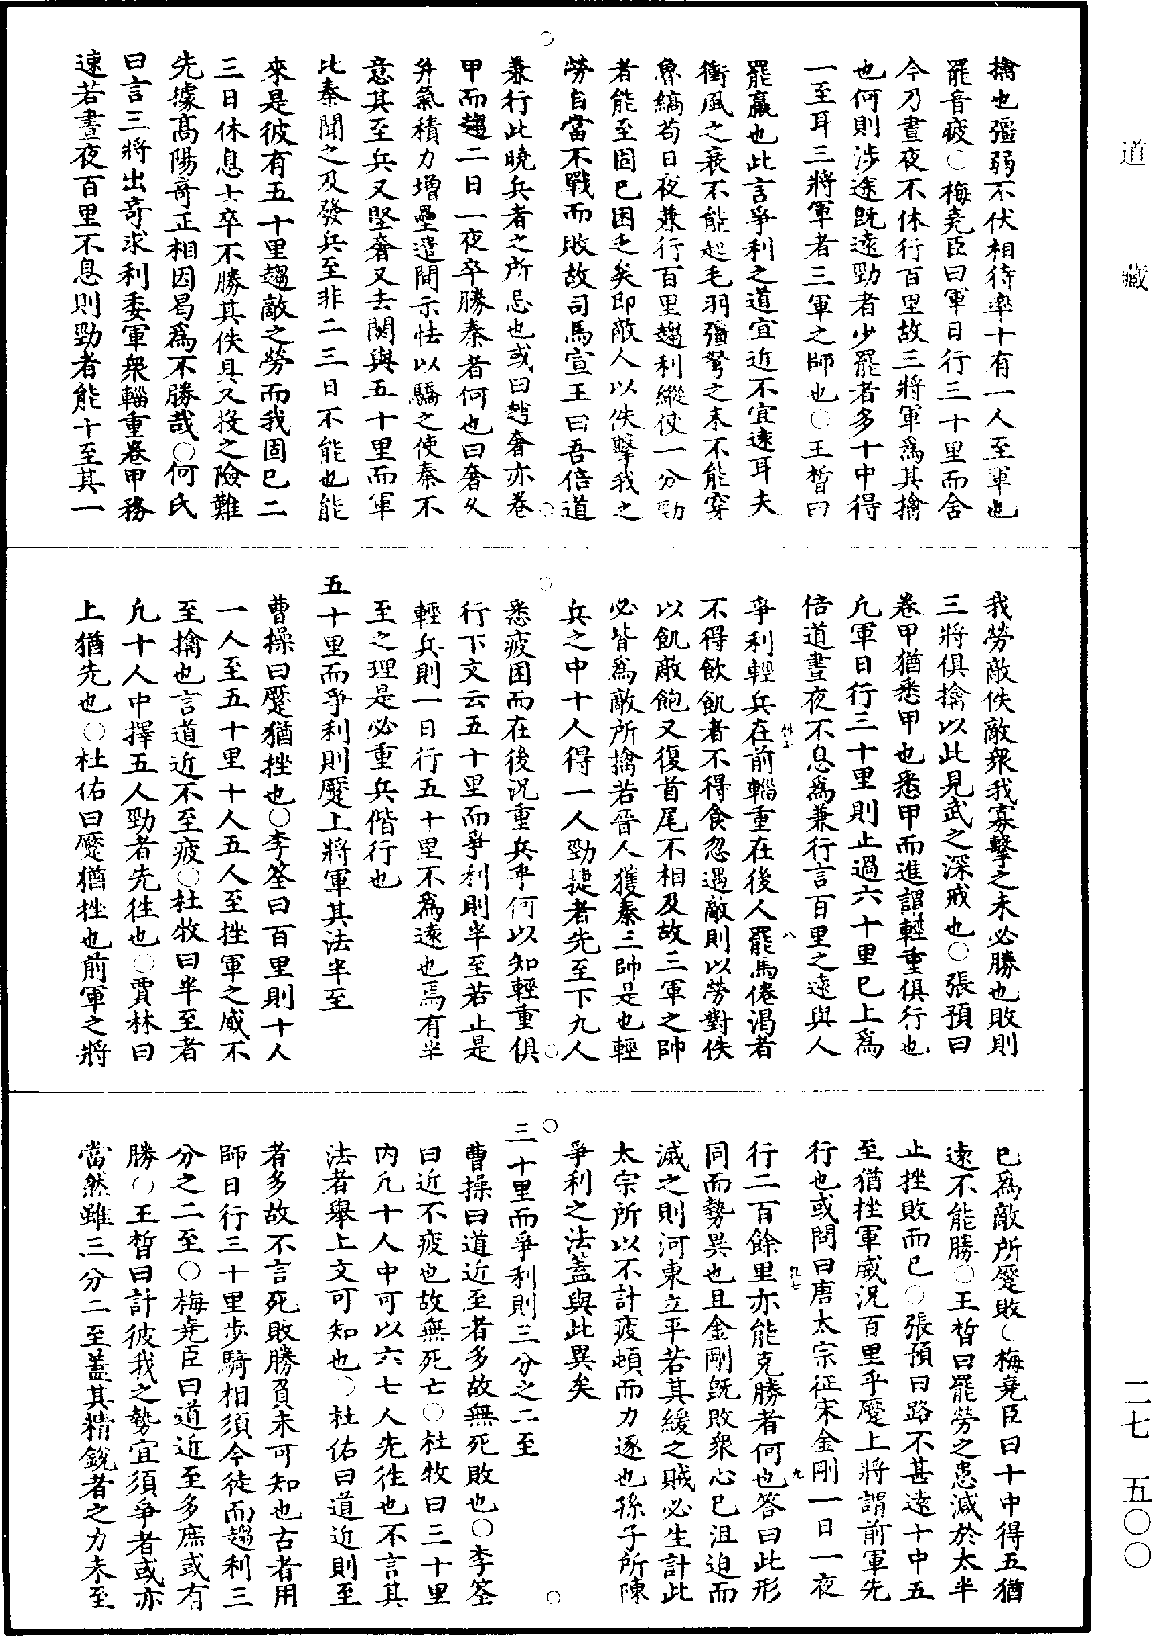 擒也彊弱不伏相待率十有一人至軍也
罷音疲○梅堯臣曰軍日行三十里而舍
今乃晝夜不休行百里故三將軍爲其擒
也何則涉途既遠勁者少罷者多十中得
一至耳三將軍者三軍之師也○王晳曰
罷羸也此言爭利之道宜近不宜遠耳夫
衝風之衰不能起毛羽彊弩之末不能穿
魯縞苟日夜兼行百里趨利縱使一分勁
者能至固已困乏矣即敵人以佚擊我之
勞自當不戰而敗故司馬宣王曰吾倍道
兼行此曉兵者之所忌也或曰趙奢亦卷
甲而趨二日一夜卒勝秦者何也曰奢久
并氣積力增壘遣間示怯以驕之使秦不
意其至兵又堅奢又去閼與五十里而軍
比秦聞之及發兵至非二三日不能也能
來是彼有五十里趨敵之勞而我固已二
三日休息士卒不勝其佚且又投之險難
先據高陽奇正相因曷爲不勝哉○何氏
曰言三將出奇求利委軍衆輜重卷甲務
速若晝夜百里不息則勁者能十至其一
我勞敵佚敵衆我寡擊之未必勝也敗則
三將俱擒以此見武之深戒也○張預曰
卷甲猶悉甲也悉甲而進謂輕重俱行也
凡軍日行三十里則止過六十里已上爲
倍道晝夜不息爲兼行言百里之遠與人
爭利輕兵在前輜重在後人罷馬倦渴者
不得飲飢者不得食忽遇敵則以勞對佚
以飢敵飽又復首尾不相及故三軍之帥
必皆爲敵所擒若晉人獲秦三帥是也輕
兵之中十人得一人勁捷者先至下九人
悉疲困而在後況重兵乎何以知輕重俱
行下文云五十里而爭利則半至若止是
輕兵則一日行五十里不爲遠也焉有半
至之理是必重兵偕行也
五十里而爭利則蹷上將軍其法半至
曹操曰蹷猶挫也○李筌曰百里則十人
一人至五十里十人五人至挫軍之威不
至擒也言道近不至疲○杜牧曰半至者
凡十人中擇五人勁者先往也○賈林曰
上猶先也○杜佑曰蹷猶挫也前軍之將
已爲敵所蹷敗○梅堯臣曰十中得五猶
遠不能勝○王晳曰罷勞之患減於太半
止挫敗而已○張預曰路不甚遠十中五
至猶挫軍威況百里乎蹷上將謂前軍先
行也或問曰唐太宗征宋金剛一日一夜
行二百餘里亦能克勝者何也答曰此形
同而勢異也且金剛既敗衆心已沮迫而
滅之則河東立平若其緩之賊必生計此
太宗所以不計疲頓而力逐也孫子所陳
爭利之法蓋與此異矣
三十里而爭利則三分之二至
曹操曰道近至者多故無死敗也○李筌
曰近不疲也故無死亡○杜牧曰三十里
內凡十人中可以六七人先往也不言其
法者舉上文可知也○杜佑曰道近則至
者多故不言死敗勝負未可知也古者用
師日行三十里步騎相須今徒而趨利三
分之二至○梅堯臣曰道近至多庶或有
勝○王晳曰計彼我之勢宜須爭者或亦
當然雖三分二至蓋其精銳者之力未至
道藏
二七 五〇〇